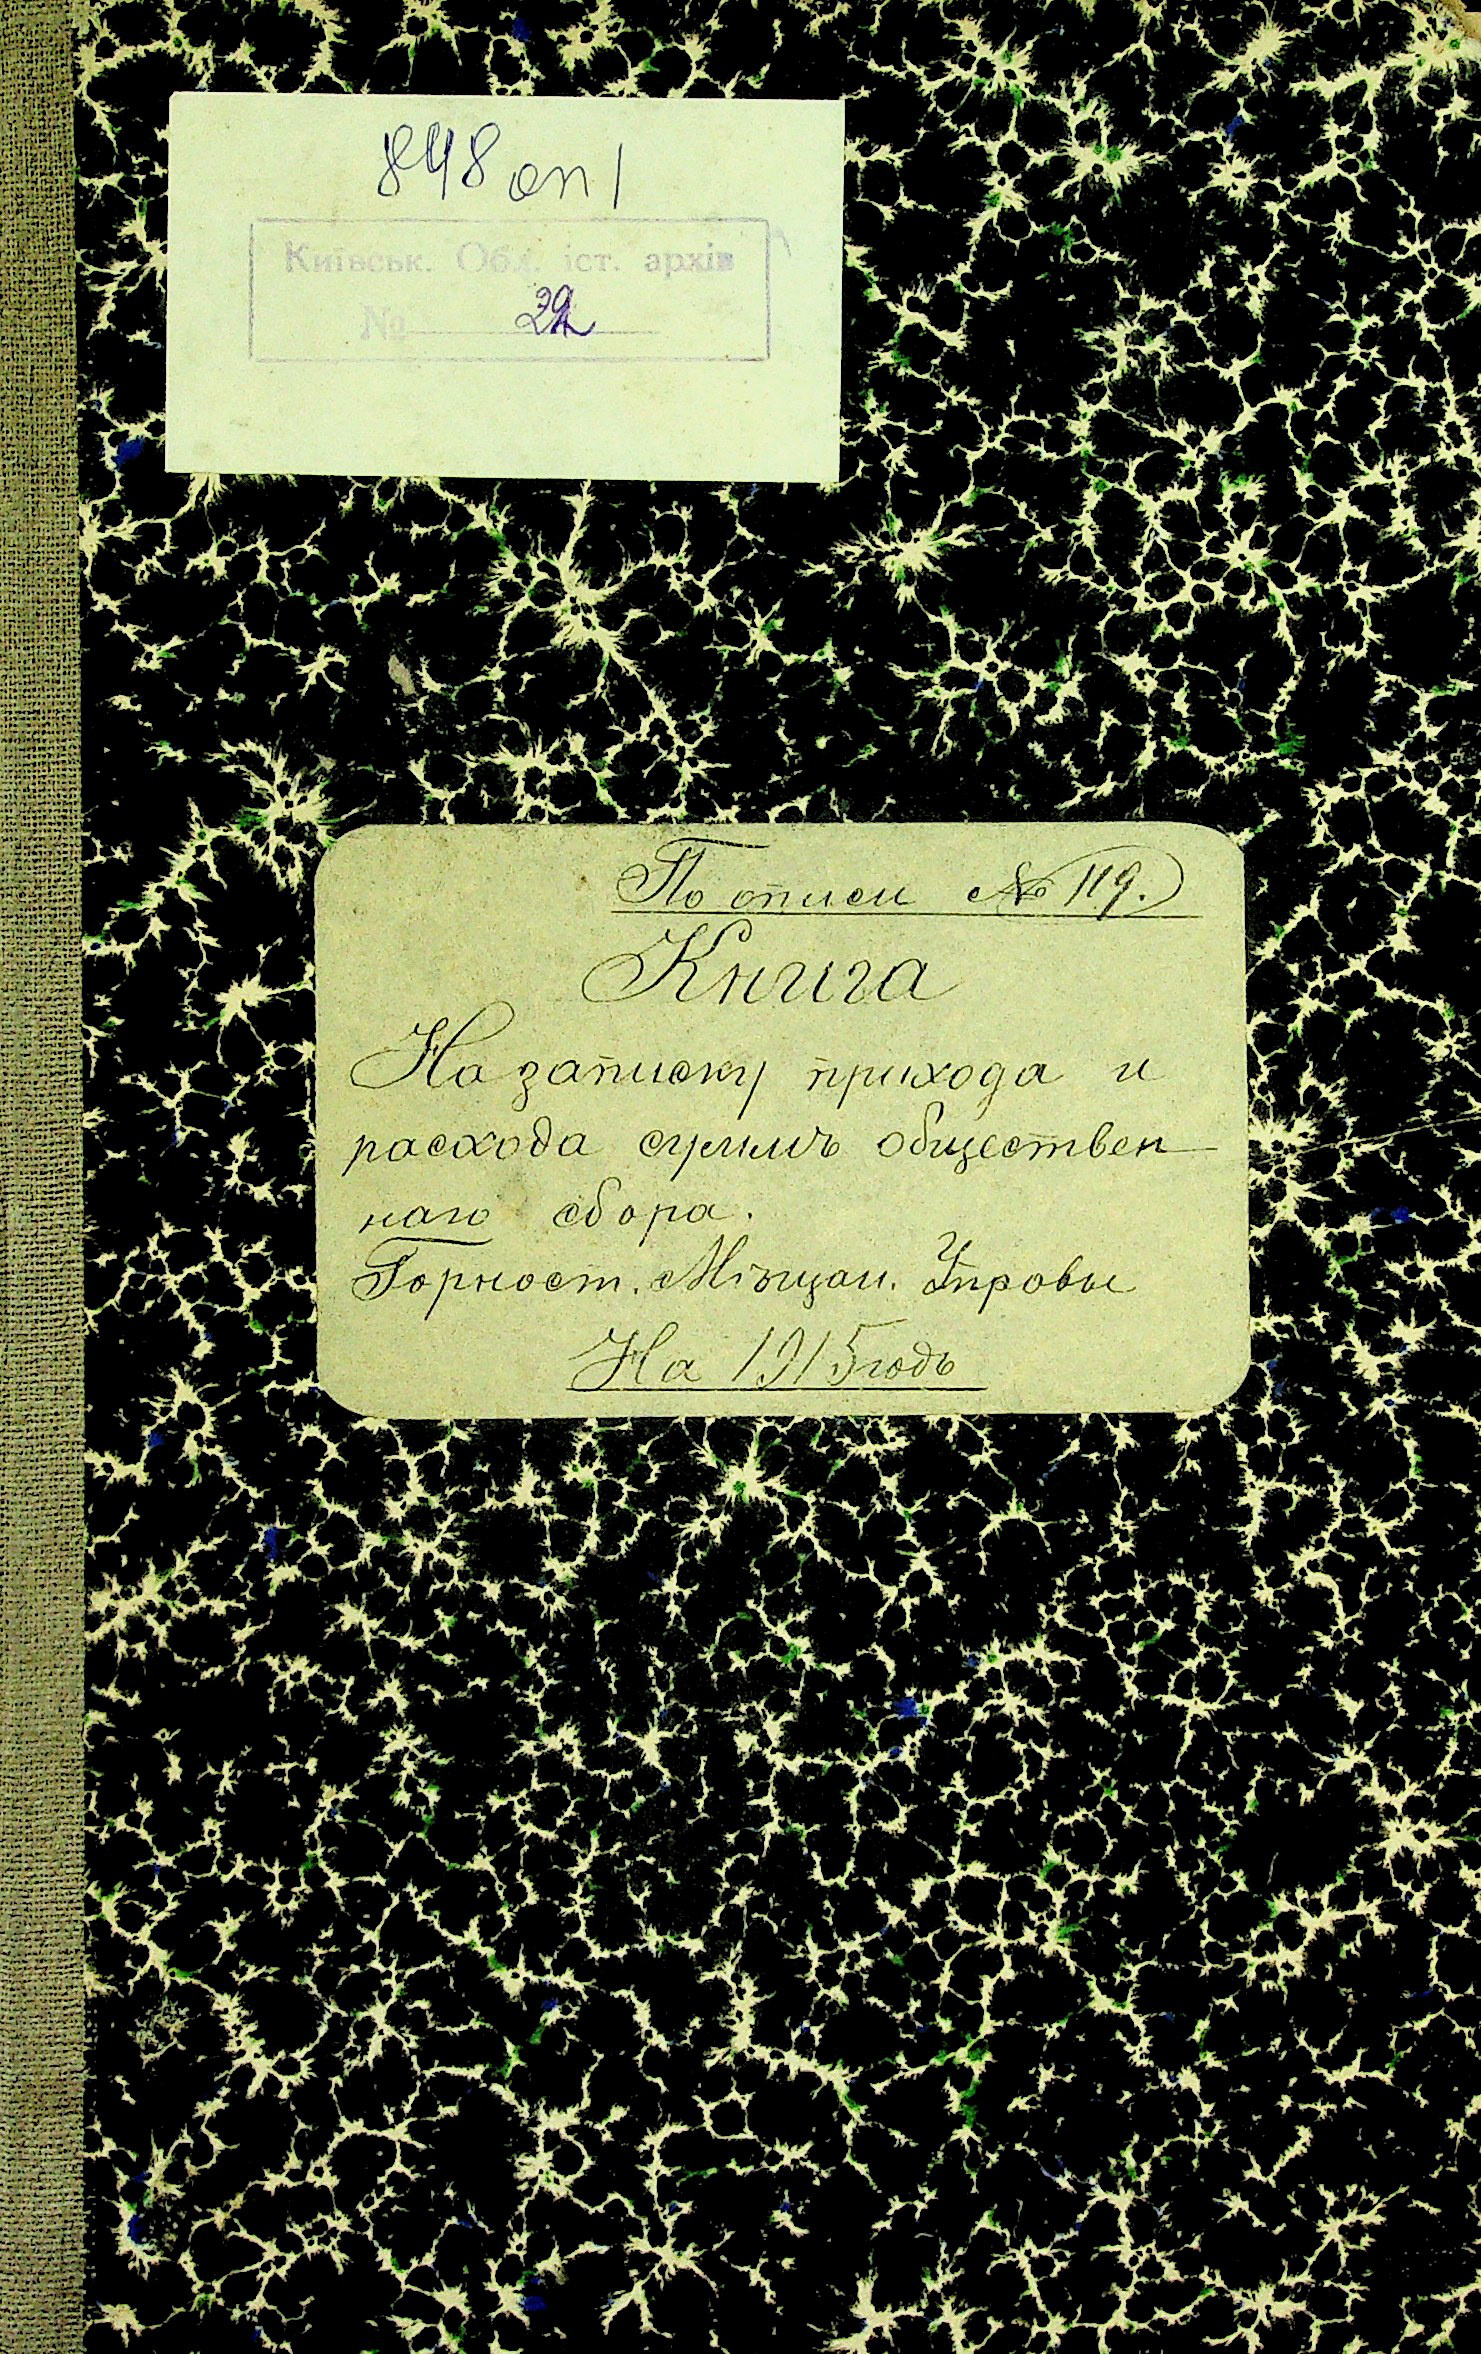 848 оп 1
Київськ. Обл. іст. архів
№
По описи № 119.
Книга
На записку прихода и
расхода суммъ обществен
наго сбора.
Горност. Мѣщан. Упровы
На 1915 годъ